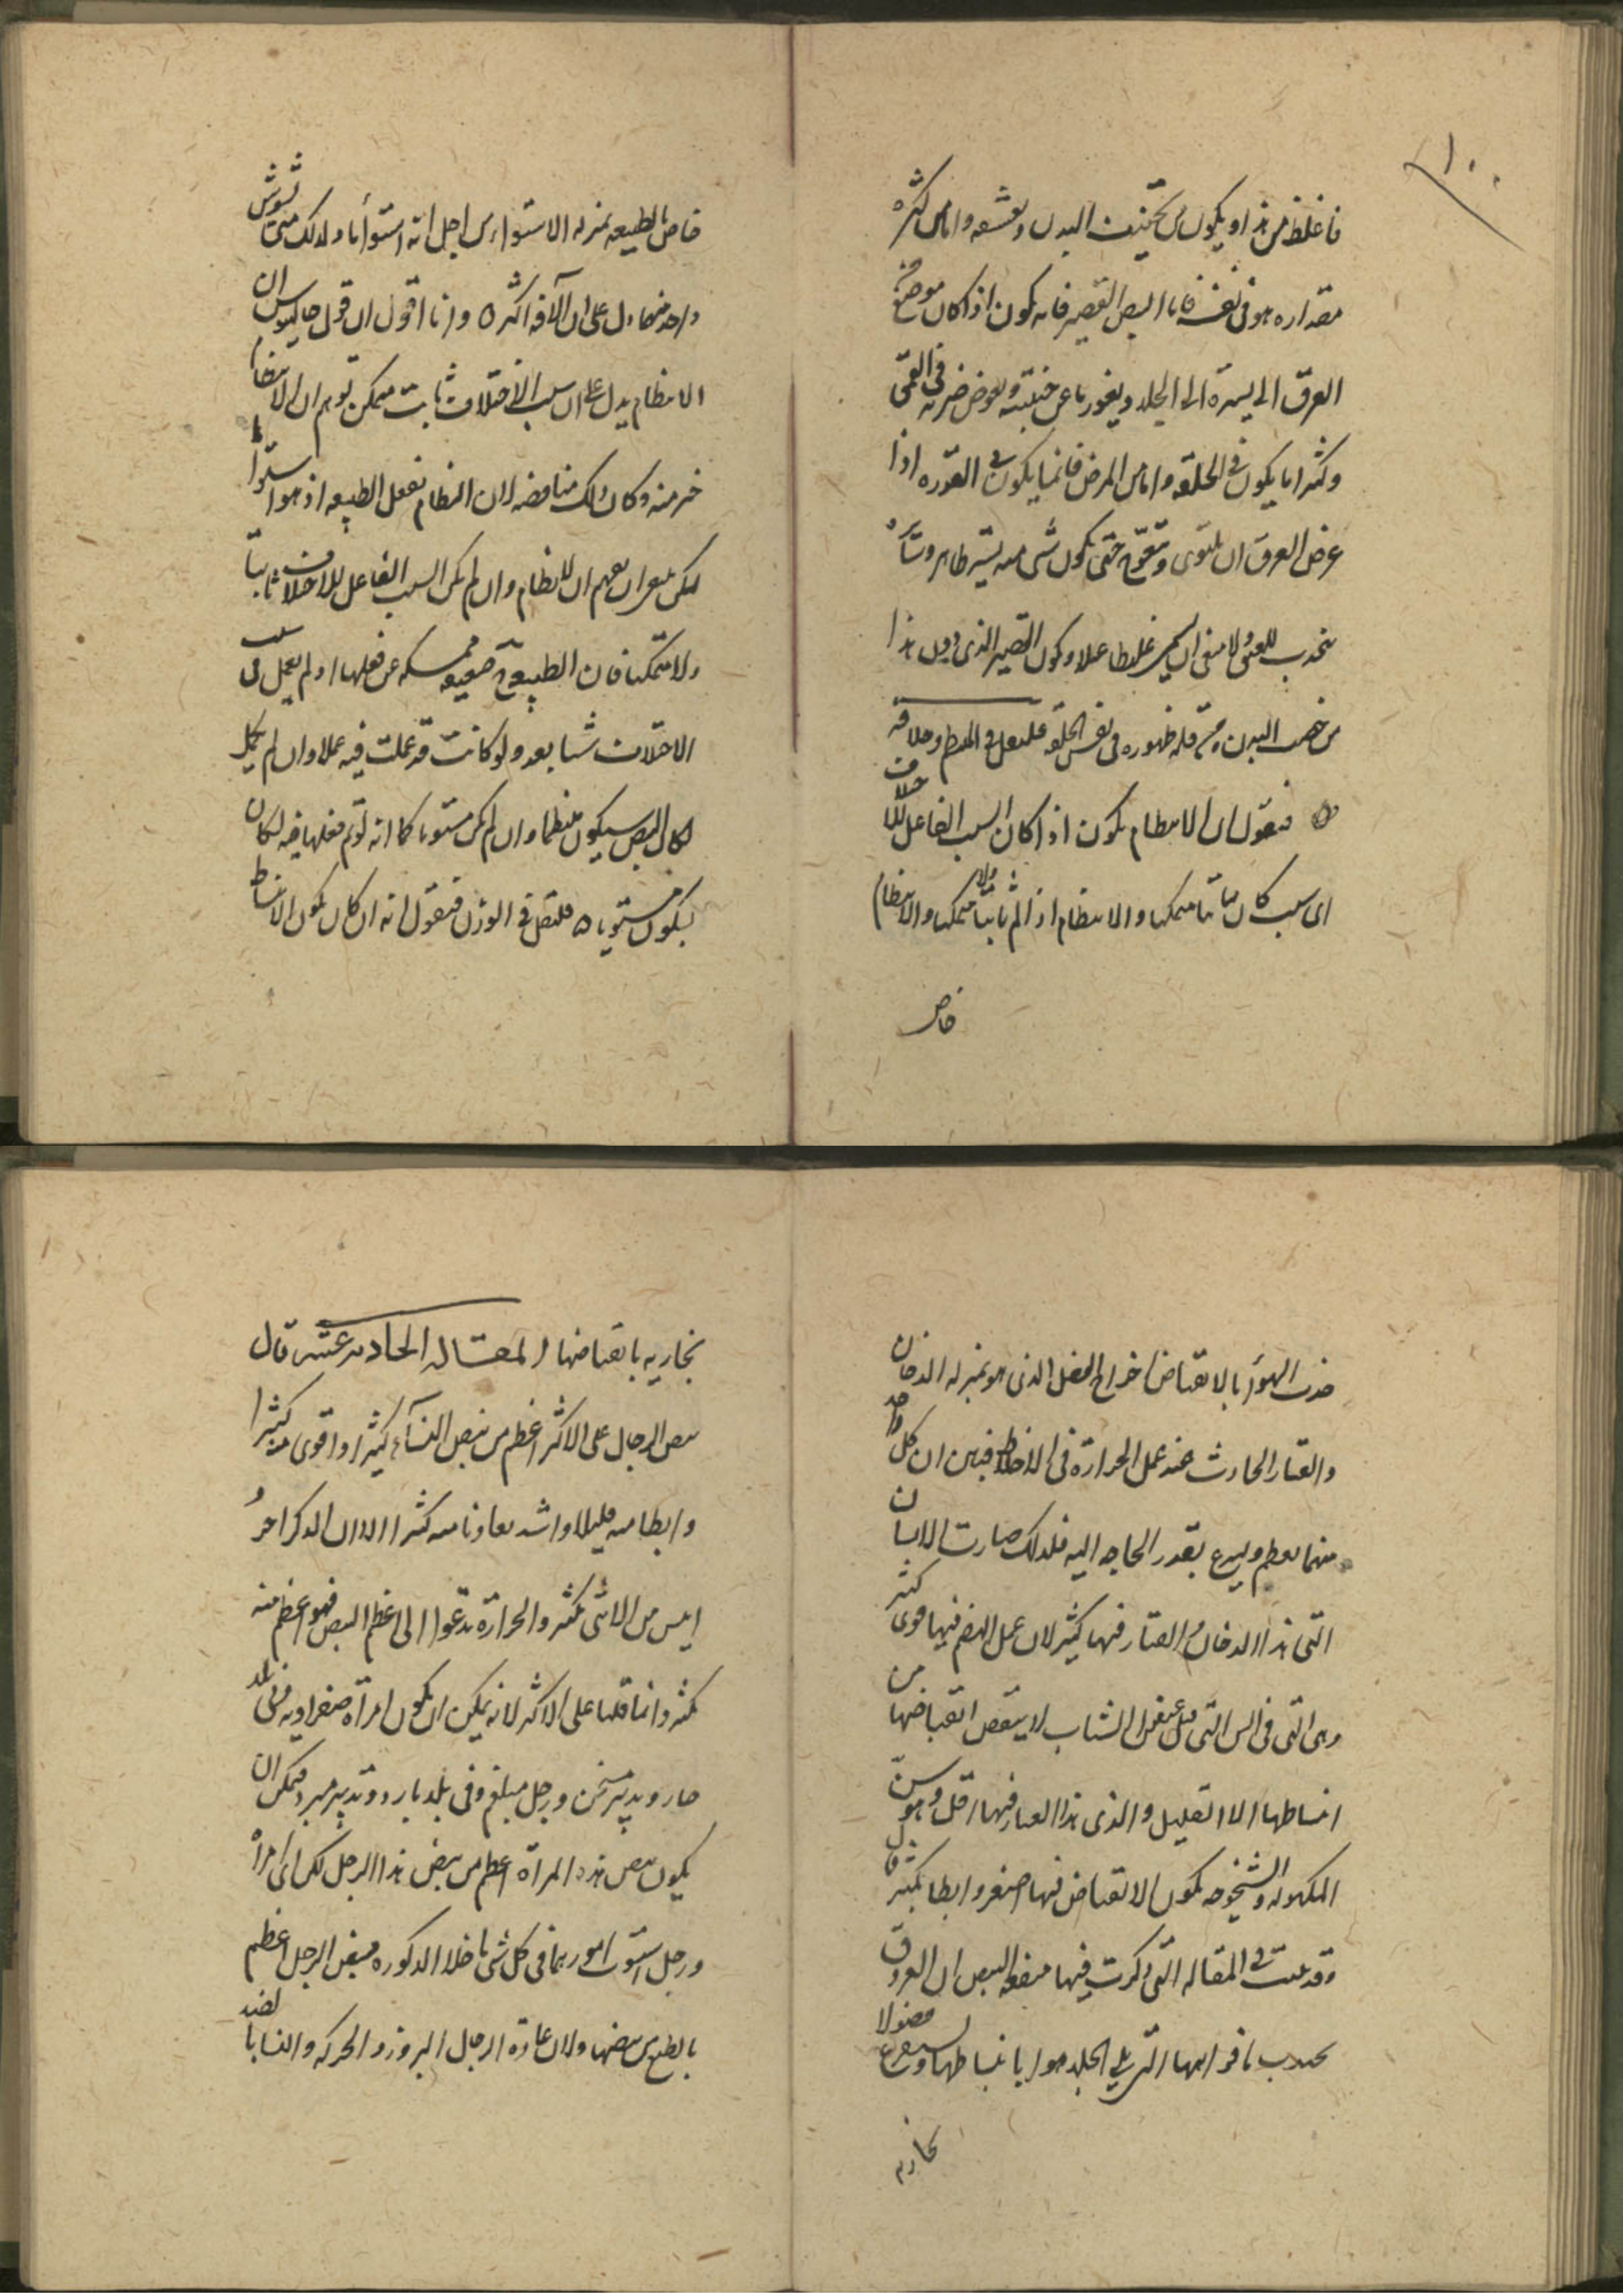 ١٠٠
فاغلظ من هذا ويكون من تحنيف البدن وقشفه واما من كثرة
مقداره هو في نفسه فاما النبض القصير فانه يكون اذا كان موضع
العرق الى يسرة الى الجلد ويغور ما عن جنبتيه وبعرض ضربه في العمق
وكثيرا ما يكون في الخلقة واما من المرض فانما يكون في القوره اذا
عرض العرق ان يلتوى ويتعوج حتى يكون شى منه يسير ظاهر وساره
من خصب البدن ومن قلة ظهوره في نفس الخلقة فلنقل في النظم وخلافه
فنقول ان الانتظام يكون اذا كان السبب الفاعل للاختلاف
اى سبب كان ثابتا متمكنا والا انتظام اذا لم ثابتا ولا متمكنا والانتظام
خاص
خاص بالطبيعه بمنزله الاستواء من اجل انه استوأ ما ولذلك متى تشوش
واحد منهما دل على ان الآفه اكثر ٥ وانا اقول ان قول جالينوس ان
الانتظام يدل على ان سبب الاختلاف ثابت متمكن توهم ان الا انتظام
خير منه وكان ذلك مناقضه لان النظام بفعل الطبيعه اذ هو استوأ ما
لكن ينبغى ان يفهم ان للانظام وان لم يكن السبب الفاعل للاختلاف ثابتا
ولا متمكنا فان الطبيعه ضعيفه ممسكه عن فعلها اذ لم يعمل في سبب
الاختلاف شيا بعد ولو كانت قد عملت فيه عملا وان لم يكمل
لكان النبض سيكون منتظما وان لم يكن مستويا كما انه لو تم فعلها فيه لكان
يكون مستويا ٥ فلنقل في الوزن فنقول انه ان كان يكون الانبساط
جذب الهوأ بالانقباض اخراج الفضل الذى هو بمنزله الدخان
والقتار الحادث عند عمل الحرارة في الاخلاط فبين ان كل واحد
منهما يعظم ويسرع بقدر الحاجه اليه فلذلك صارت الاسنان
التى هذا الدخان والقتار فيها كثير لان عمل الهضم فيها قوى كثير
وهى التى في السن التى قبل عنفوان الشباب لا ينقص انقباضها من
انبساطها الا القليل والذى هذا القتار فيها اقل وهو سن
الكهوله والشيخوخه يكون الانقباض فيها اصغر وابطا بكثير قال
وقد بينت في المقاله التى ذكرت فيها منفعه النبض ان العروق
تجذب بافواهها التى تلى الجلد هوا بانبساطها وتستفرغ فضولا
بخاريه
بخاريه بانقباضها المقاله الحاديه عشر قال
نبض الرجال على الاكثر اعظم من نبض النسآء كثيرا واقوى منه كثيرا
وابطا منه قليلا واشد تفاوتا منه كثيرا لان الذكر احرُ
ايبس من الانثى بكثير والحرارة تدعوا الى اعظم النبض فهو اعظم منه
بكثير وانما قلنا على الاكثر لانه يمكن ان يكون امرأة صفراويه في بلد
حار وتدبير مسخن ورجل مبلغم وفى بلد بارد وتدبير مبرد فيمكن ان
يكون نبض هذه المرأة اعظم من نبض هذا الرجل لكن اى امرأ
ورجل استوت امورهما في كل شى ما خلا الذكوره فنبض الرجل اعظم
بالطبع من نبضها ولان عادة الرجال البروز والحركه والنسا بالضد